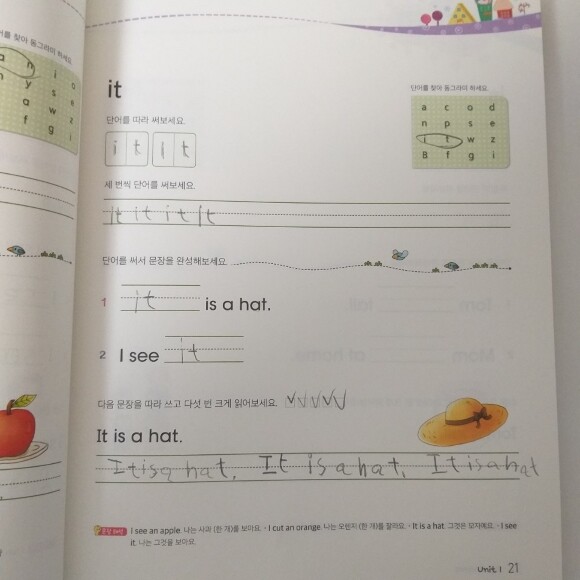 어를 찾아 동그라미 하세요.
a n i o
y s e
a w z
f g i
it
단어를 찾아 동그라미 하세요.
a c o d
n p s e
i t w z
B f g i
단어를 따라 써보세요.
it It
세 번씩 단어를 써보세요.
It it it It
단어를 써서 문장을 완성해보세요.
1 it is a hat.
2 I see it
다음 문장을 따라 쓰고 다섯 번 크게 읽어보세요.
It is a hat.
It is a hat. It is a hat. It is a hat
문장 해석 I see an apple. 나는 사과 (한 개)를 보아요. · I cut an orange. 나는 오렌지 (한 개)를 잘라요. · It is a hat. 그것은 모자예요. · I see
it. 나는 그것을 보아요.
Unit 1 21